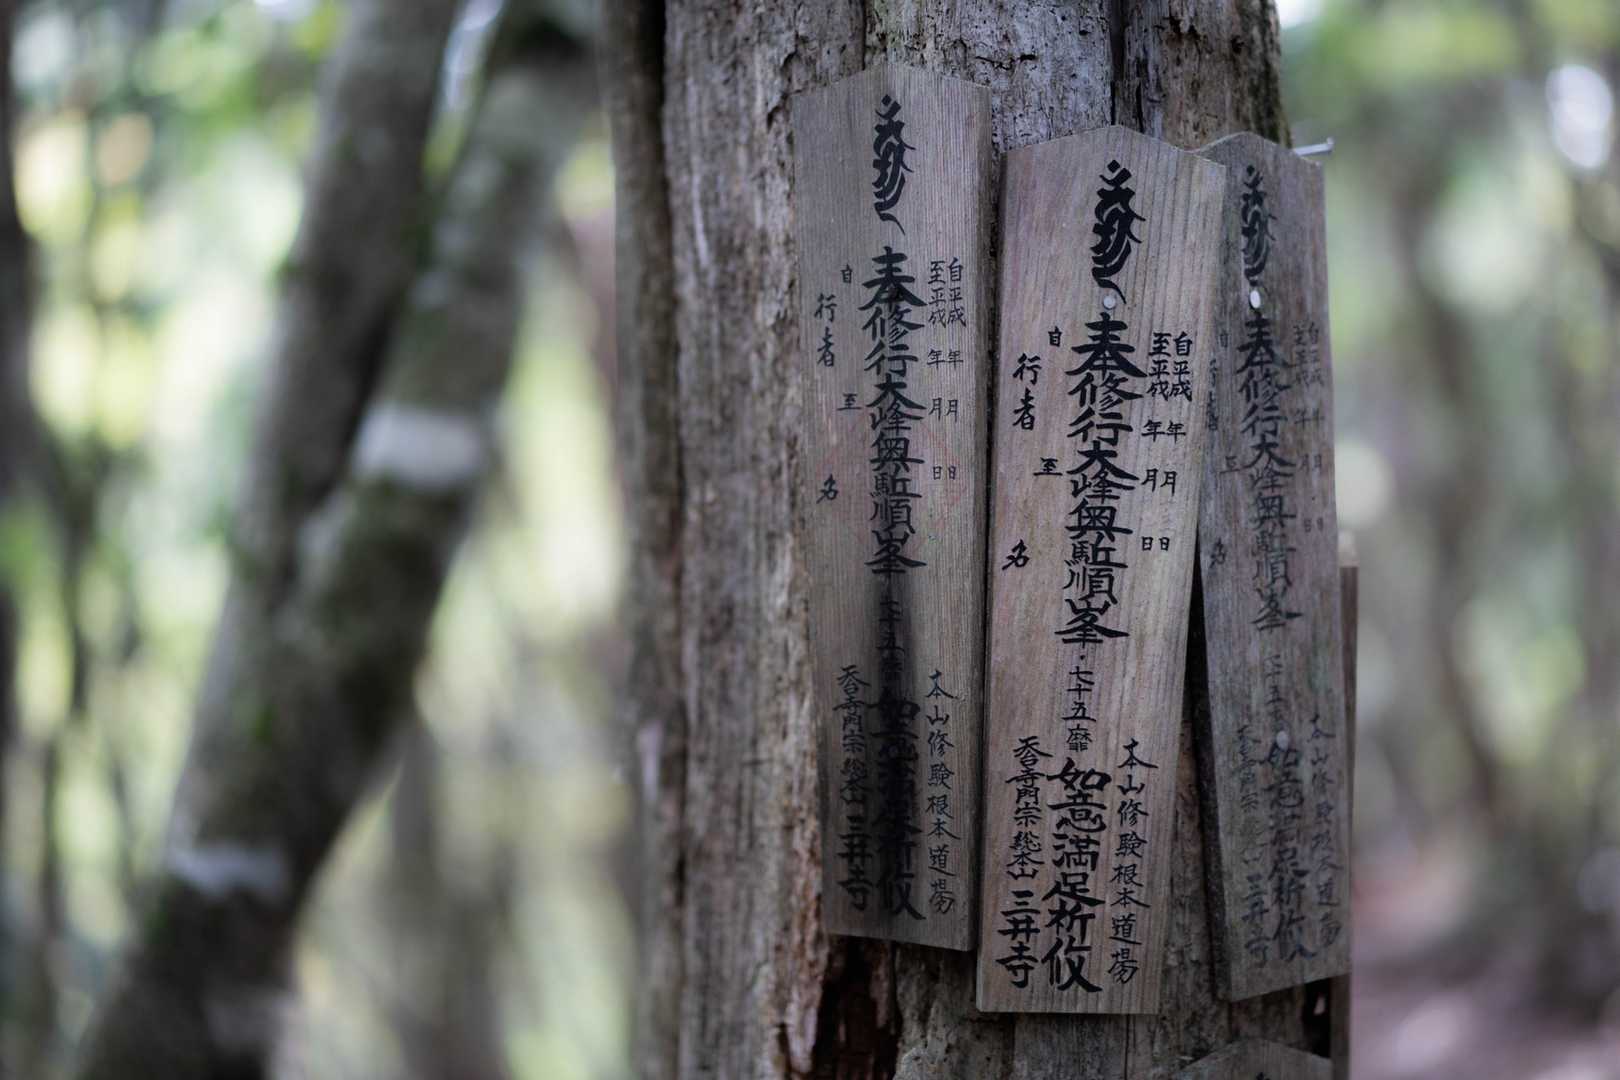 奉修行大峰奥駈順峯
自平成 年 月 日
至平成 年 月 日
自
行者
至
名
七十五靡
如意満足祈攸
本山修験根本道場
天台寺門宗総本山
三井寺
奉修行大峰奥駈順峯・七十五靡
如意満足祈攸
自平成 年 月 日
至平成 年 月 日
自
行者
至
名
本山修験根本道場
天台寺門宗総本山三井寺
奉修行大峰奥駈順峯
自平成 年 月 日
至平成 年 月 日
行者
至
名
如意満足祈攸
本山修験根本道場
三井寺